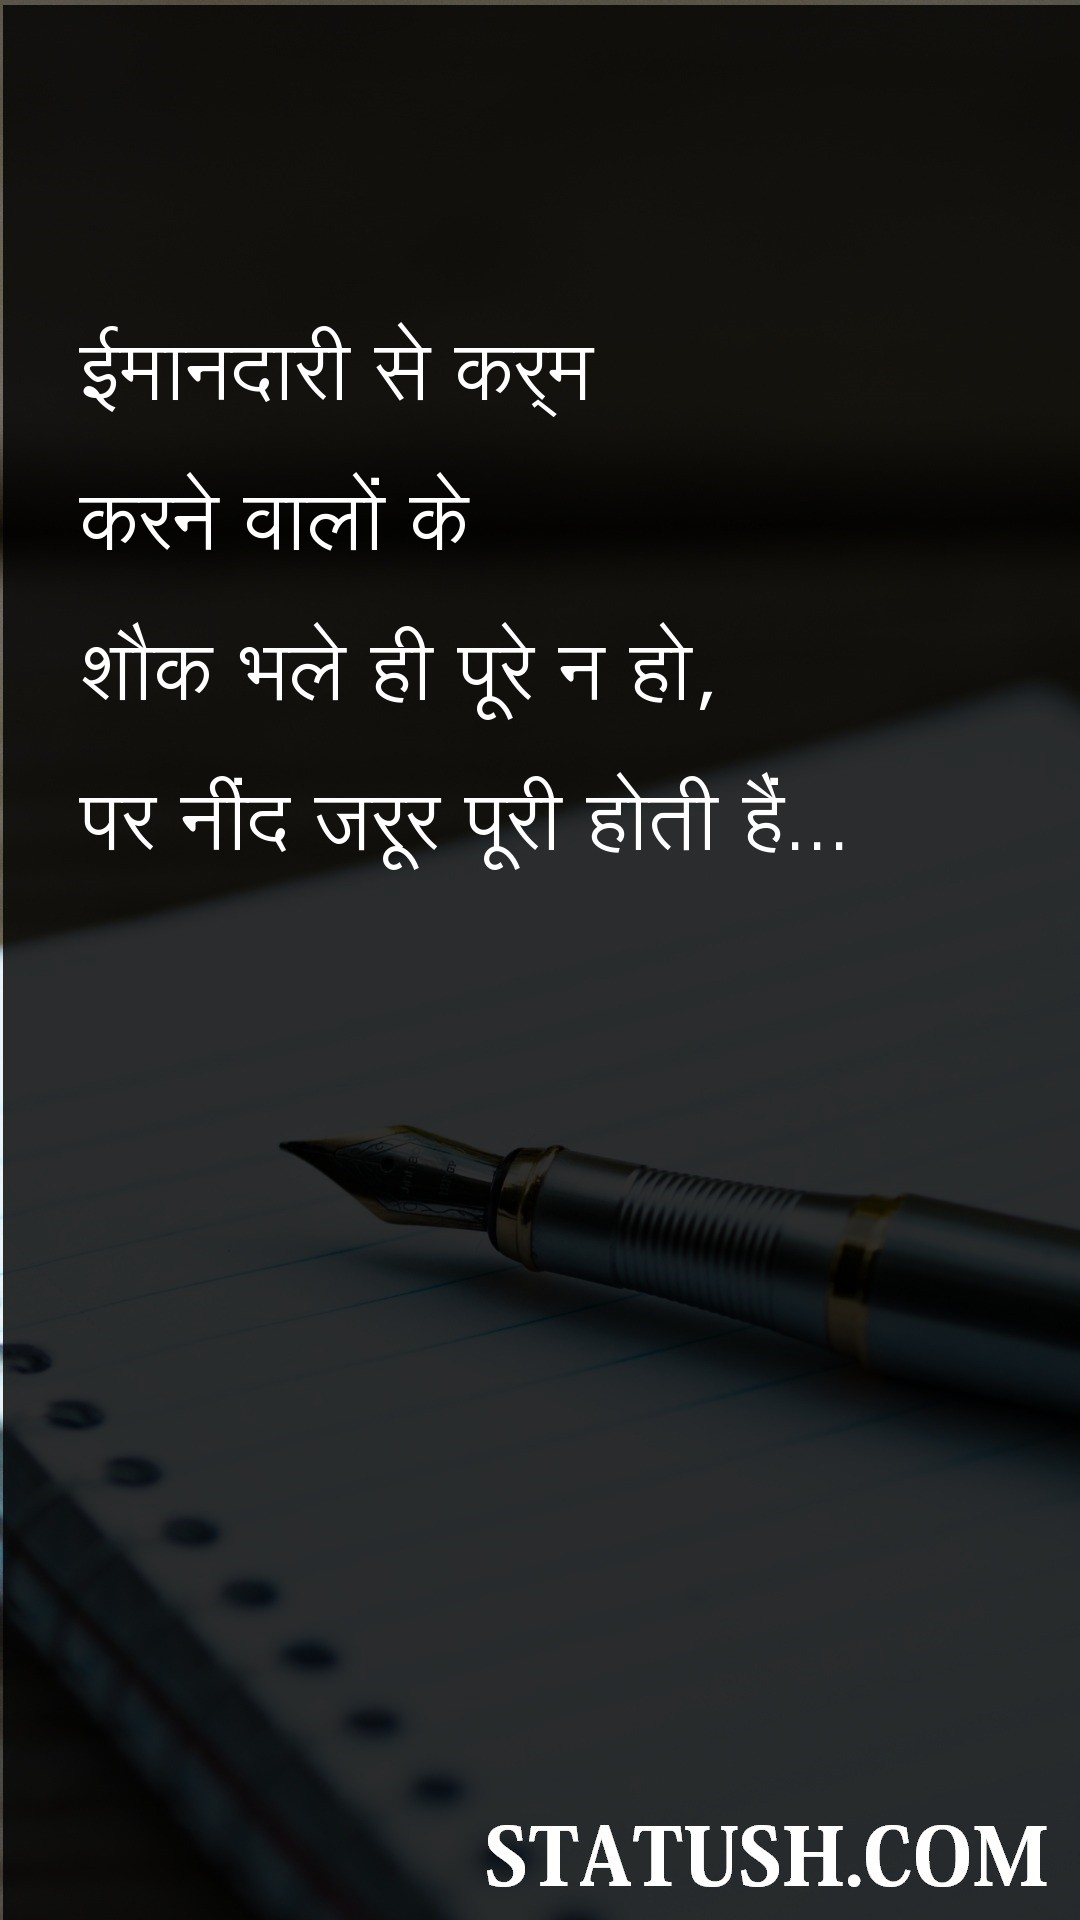 ईमानदारी से कर्म
करने वालों के
शौक भले ही पूरे न हो,
पर नींद जरूर पूरी होती हैं...
STATUSH.COM